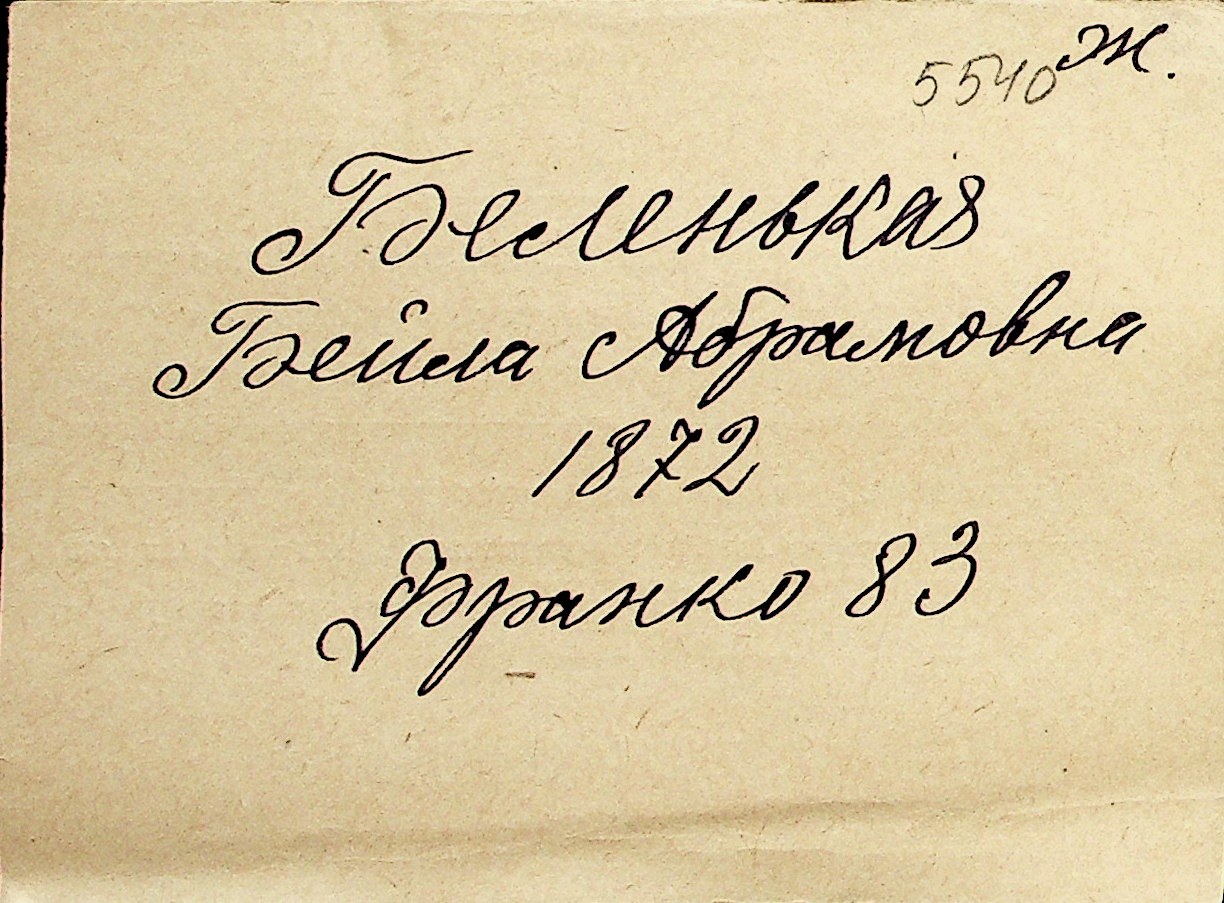 5540 Ж.
Беленькая
Бейла Абрамовна
1872
Франко 83